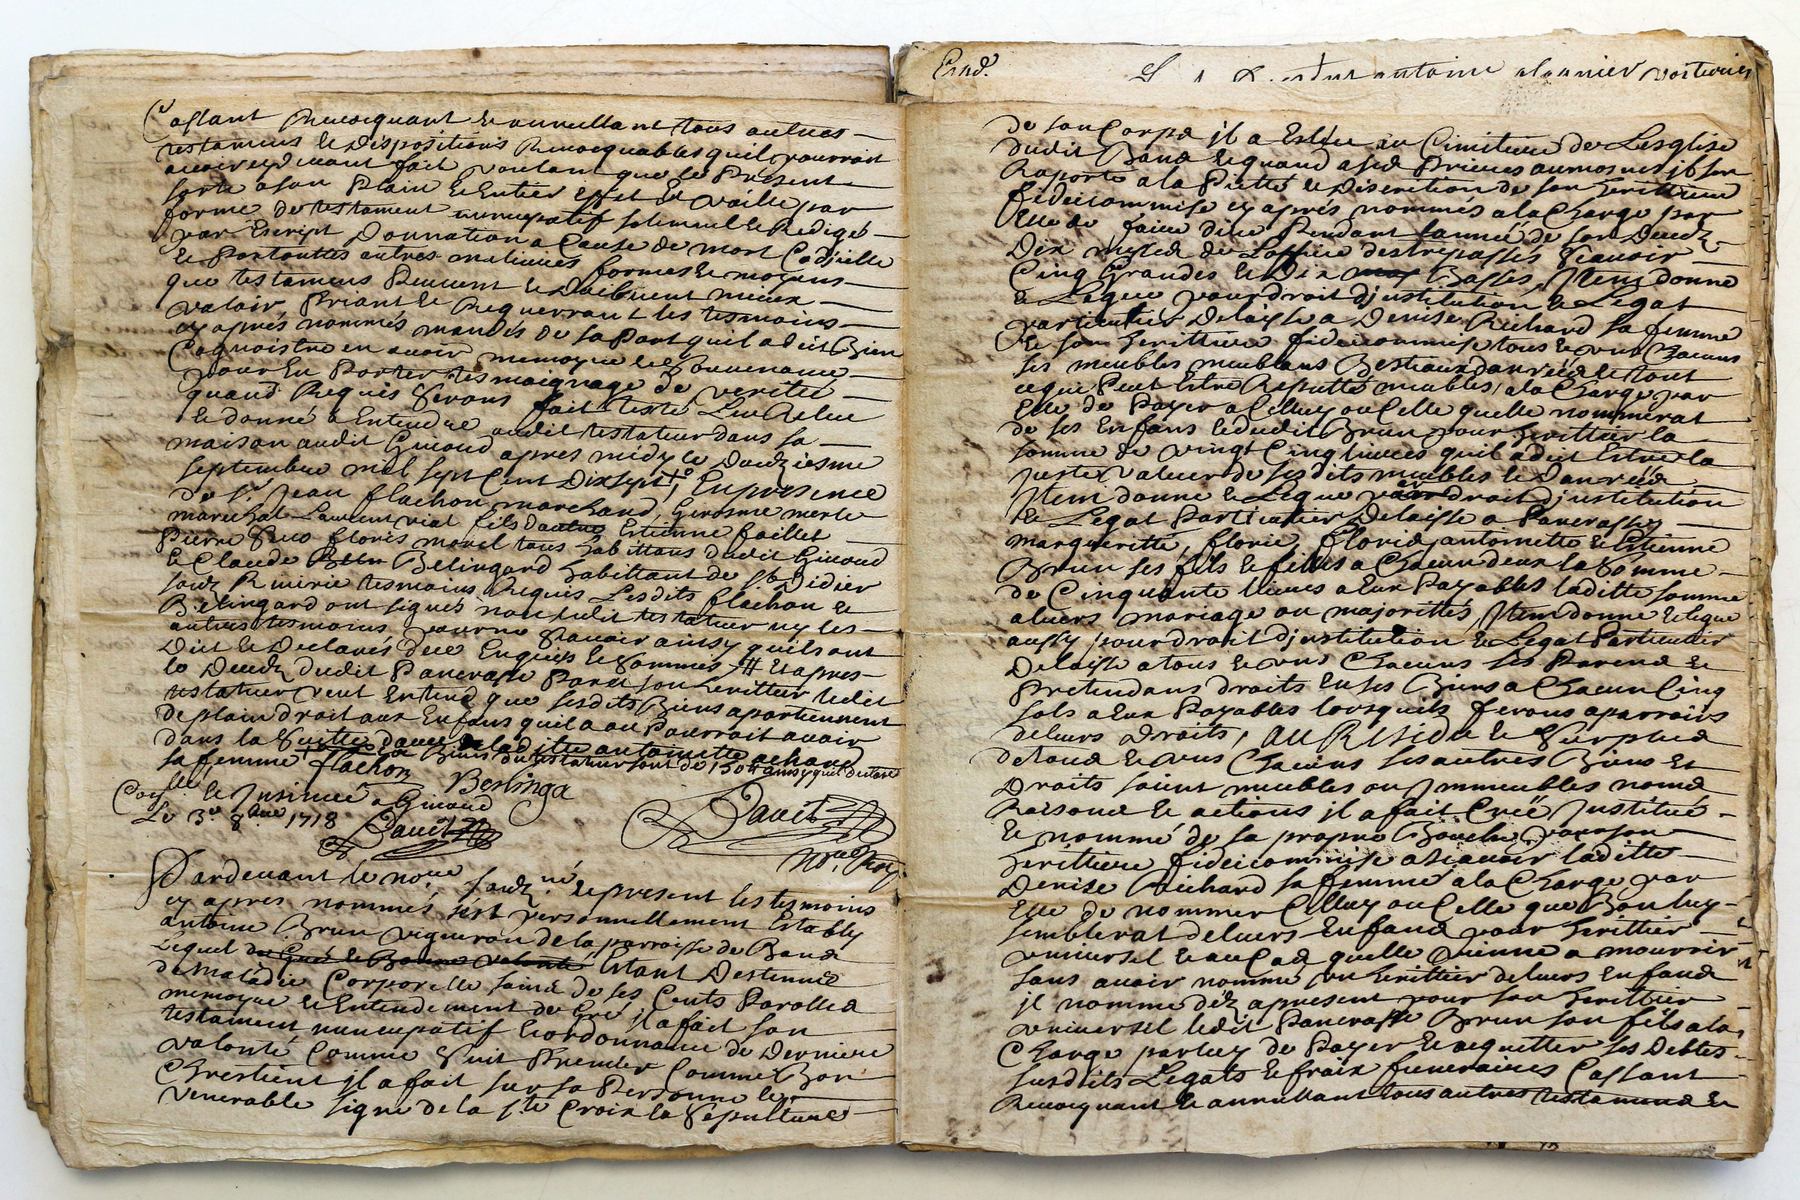 Cassant Revocquant & annullant tous autres
testamens & dispositions Revocquables quil pourroit
avoir cy devant fait voulant que le Present
sorte a son Plain & Entier effet & vaille par
forme de testament nuncupatif solennel & Redigé
par Escript Donnation a Cause de mort Codicille
& Par touttes autres meilleures formes & moyens
que testamens Peuvent & doibvent mieux
valoir Priant & Requerrant les tesmoins
cy aprés nommés mandés de sa Part quil a dit Bien
Cognoistre en avoir memoyre & Souvenance
pour En Porter tesmoignage de verité
quand Requis Seront fait testé Leu Releu
& donné a Entendre audit testateur dans sa
maison audit Gueud apres midy le Douziesme
septembre mil sept Cent Dixsept, En presence
de Sr. Jean flachon marchand, Gerosme merle
marechal Laurent vial fils dautre Estienne faillet
Pierre Floris morel tous habittans dudit
& Claude Belingard habittant de St. Didier
soubz Riverie tesmoins Requis Lesdits flachon &
Belingard ont signés non ledit testateur ny les
autres tesmoins pour ne sçavoir ainsy quils ont
Dit & Declarés dece Enquis & Sommés # Et apres
le Decedz dudit Pancrasse Paret son heritier ledit
testateur veut Entend que sesdits Biens apartiennent
de plain droit aux Enfans quil a ou Pourroit avoir
dans la Suitte avec laditte antoinette achard
sa femme Les Biens du testateur sont de 150 ₶ ainsy quil declare
flachon Berlinga
Conllé & Insinué a
Le 3e 8bre 1718
Davit Davit
Nore. Roy.
Pardevant le nore. soubzné. & present les tesmoins
cy apres nommés, sest personnellement Estably
antoine Brun vigneron de la parroisse de Band
Lequel de Gré & Bonne volonté Estant Destenue
de maladie Corporelle saine de ses Cents Parolles
memoyre & Entendement de Gré il a fait son
testament nuncupatif & ordonnance de Derniere
valonté Comme Suit Premier Comme Bon
Chrestient il a fait sur sa Personne le
venerable signe de la Ste. Croix la Sepulture
antoine voiturier
de son Corps il a Esleue au Cimitiere de Lesglise
dudit Band & quand a ses Prieres aumosnes il sen
Raporte a la Pietté & Discretion de son heritiere
fideicommise cy aprés nommés a la Charge par
Elle de faire dire Pendant lannée de son Decedz
Dix messes de Loffice des trepassés sçavoir
Cinq Grandes & Dix Basses, Item donne
& Legue pour droit d'institution & Legat
particulier Delaisse a Denise Richard sa femme
& son heritiere fideicommise tous & uns Chacuns
ses meubles meublans Bestiaux danrées & tout
ce qui Peut Estre Reputté meubles, a la Charge par
Elle de Payer a Celluy ou Celle quelle nommerat
de ses Enfans & dudit Brun pour heritier la
somme de vingt Cinq livres quil a dit Estre la
juste valeur de sesdits meubles & Danrées
Item donne & Legue pour droit d'institution
& Legat Particulier Delaisse a Pancrasse,
margueritte, florie, floris, antoinette & Estienne
Brun ses fils & filles a Chacun deux la Somme
de Cinquante livres a Eux Payables laditte somme
a leurs mariage ou majorittés, Item donne & legue
aussy pour droit d'institution & Legat Particulier
Delaisse a tous & uns Chacuns ses Parens &
pretendans droits En ses Biens a Chacun Cinq
sols a Eux Payables lorsquils feront aparroirs
de leurs droits, AU RESIDU & Surplus
de tous & uns Chacuns ses autres Biens &
Droits soient meubles ou Immeubles noms
Raisons & actions il a fait Creé Institué
& nommé de sa propre Bouche pour son
heritiere fideicommise a sçavoir laditte
Denise Richard sa femme a la Charge par
Elle de nommer Celluy ou Celle que Bon luy
semblerat de leurs Enfans pour heritier
universel & au Cas quelle vienne a mourrir
sans avoir nommé un heritier de leurs Enfans
il nomme déz apresent pour son heritier
universel ledit Pancrasse Brun son fils a la
Charge par luy de Payer & acquitter ses Debtes
susdits Legats & fraix funeraires Cassant
Revocquant & annullant tous autres testamens &